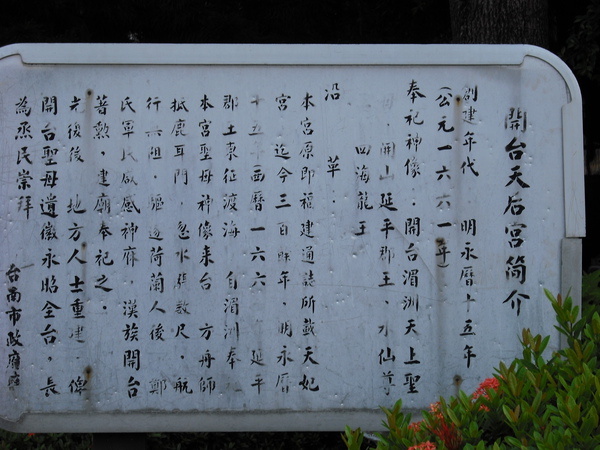 開台天后宮簡介
創建年代．明永曆十五年
(公元一六六一年)
奉祀神像．開台湄洲天上聖
母．開山延平郡王．水仙尊
四海龍王
沿革．
本宮原即福建通誌所載天妃
宮．迄今三百餘年．明永曆
十五年西曆一六六 延平
郡王東征渡海 自湄洲奉
本宮聖母神像來台 方舟師
抵鹿耳門．忽水漲數尺．航
行無阻．驅逐荷蘭人後 鄭
氏軍民咸感神庥．漢族開台
著勲．建廟奉祀之．
光復後 地方人士重建．俾
開台聖母遺徽永昭全台．長
為烝民崇拜
台南市政府